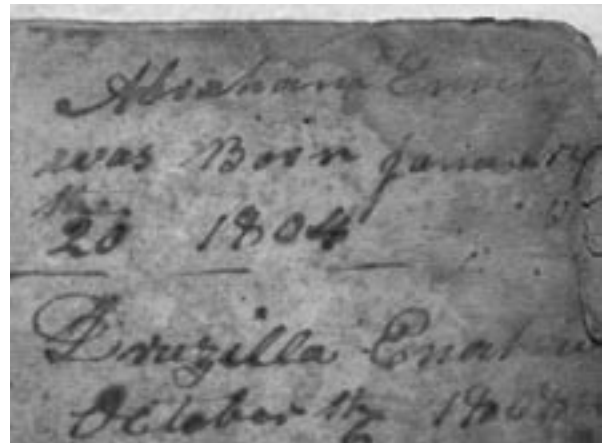 Abraham Enoch
was Born January
the
20 1804
Druzilla
October the
6